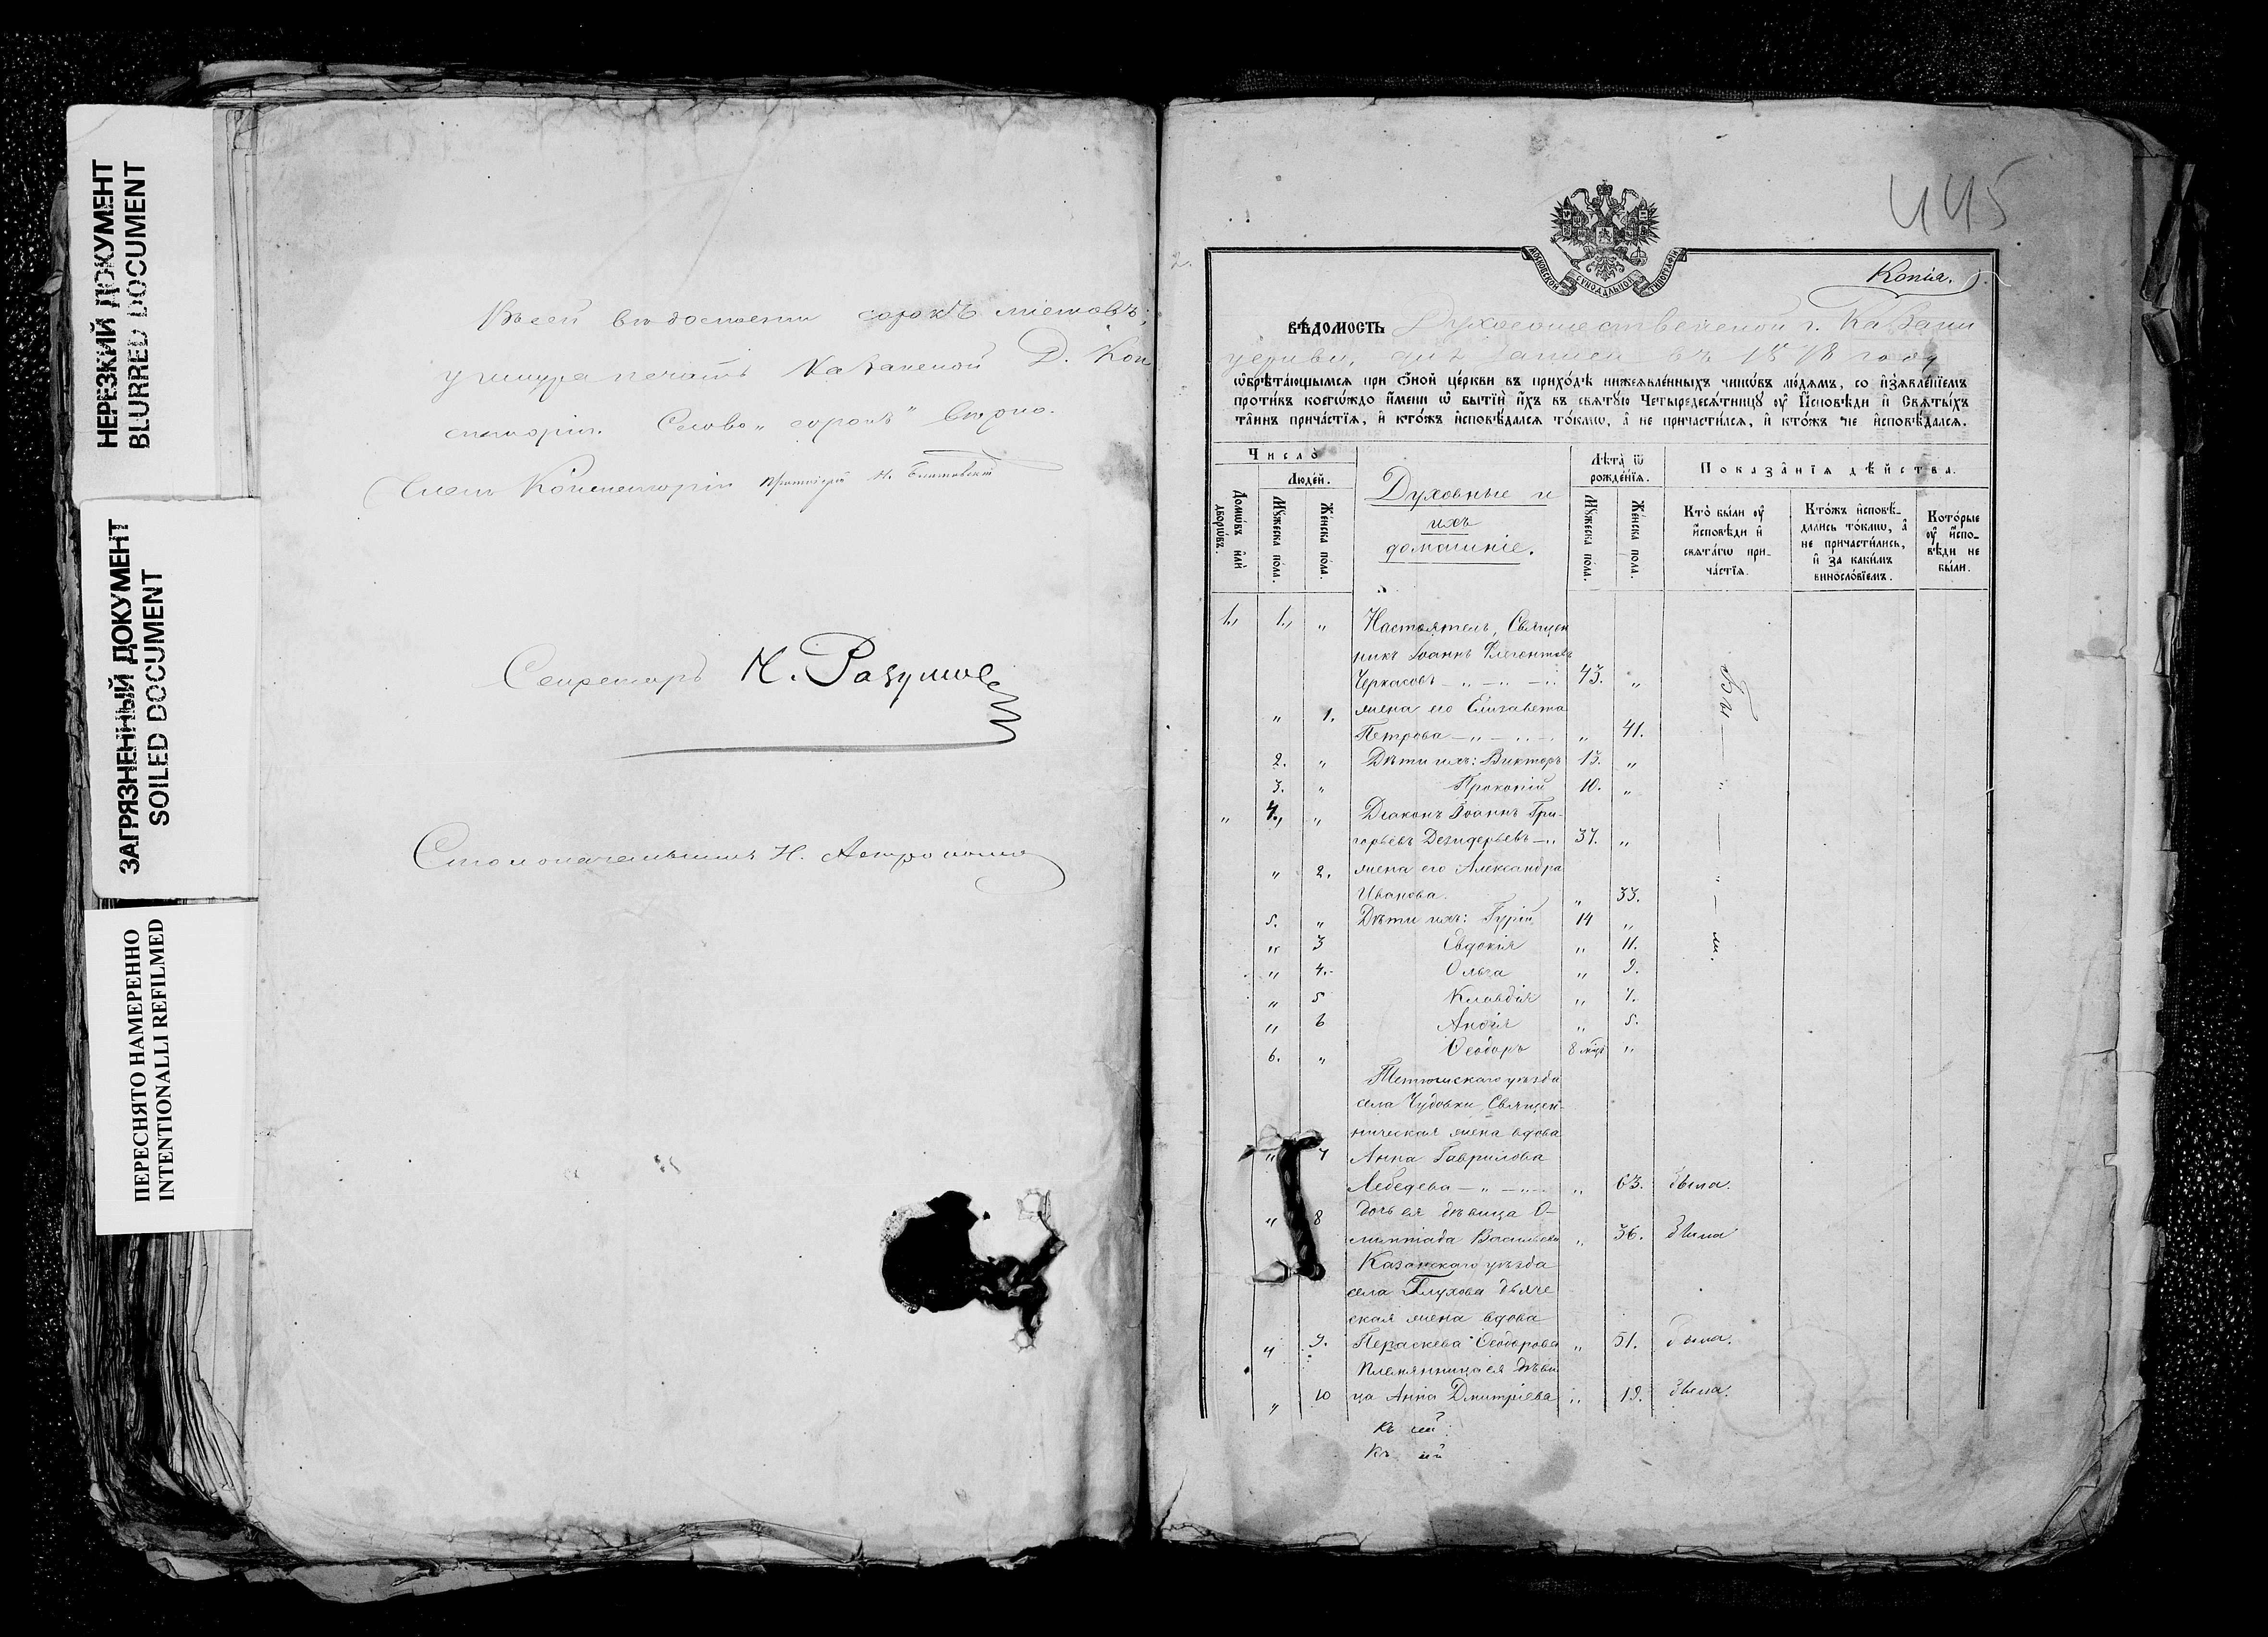 НЕРЕЗКИЙ ДОКУМЕНТ
BLURRED DOCUMENT
ЗАГРЯЗНЕННЫЙ ДОКУМЕНТ
SOILED DOCUMENT
ПЕРЕСНЯТО НАМЕРЕННО
INTENTIONALLI REFILMED
Въ сей вѣдомости сорокъ листовъ;
у шнура печать Казанской Д. Кон
систоріи. Слово „сорокъ" вѣрно.
Членъ Консисторіи Протоіерей Н.
Секретарь Н. Разумов
Столоначальникъ Н.
445
2.
МОСКОВСКОЙ СѴНОДАЛЬНОЙ ТИПОГРАФІИ
Копія.
ВѢДОМОСТЬ Духосошественской г. Казани
церкви, для записи въ 1878 году
ѡбрѣтающымсѧ при ѻной церкви въ приходѣ нижеѧвленныхъ чинѡвъ людѧмъ, со изъѧвленїемъ
противъ коегѡждо имени ѡ бытїи ихъ въ свѧтую Четыредесѧтницу оу Исповѣди и Свѧтыхъ
таинъ причастїѧ, и ктожъ исповѣдалсѧ токмѡ, а не причастилсѧ, и ктожъ не исповѣдалсѧ.
Число
Людей.
Домѡвъ или дворѡвъ.
Мужеска пола.
Женска пола.
Духовные и
ихъ
домашніе.
Лѣта ѿ рожденїѧ.
Мужеска пола.
Женска пола.
Показанїѧ дѣйства.
Кто были оу исповѣди и свѧтагѡ причастїѧ.
Ктожъ исповѣдались токмѡ, а не причастились, и за какимъ винословїемъ.
Которые оу исповѣди не были.
1., 1., „ Настоятель, Священ
никъ Іоаннъ Флегонтовъ
Черкасовъ — „ — „ — „ 43. „ Бы —
„ 1. жена его Елизавета
Петрова — „ — „ — „ 41.
2. „ Дѣти ихъ: Викторъ 13. „
3. „ Прокопій 10. „
„ 4., „ Діаконъ Іоаннъ Гри-
горьевъ Дезидерьевъ — „ 37. „
„ 2. жена его Александра
Иванова. „ 33.
5. „ Дѣти ихъ: Гурій 14 „
„ 3 Евдокія „ 11. ли.
„ 4. Ольга „ 9.
„ 5 Клавдія „ 7.
„ 6 „ 5.
6. „ Ѳеодоръ 8 мцъ „
Тетюшскаго уѣзда
села Чудовки, Священ-
ническая жена вдова
„ 7 Анна Гаврилова
Лебедева — „ — „ — „ 63. была.
„ 8 дочь ея дѣвица О-
лимпіада Васильева „ 36. была
Казанскаго уѣзда
села Глухова дьяче
ская жена вдова
„ 9. Параскева Ѳеодорова „ 51. была.
племянница ея дѣви
„ 10 ца Анна Дмитріева „ 19. была.